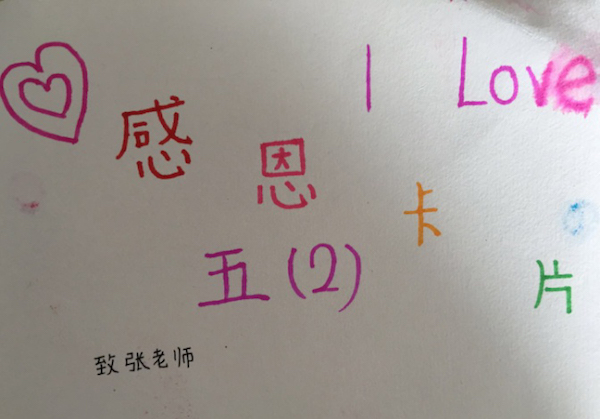 I Love
感恩卡片
五(2)
致张老师